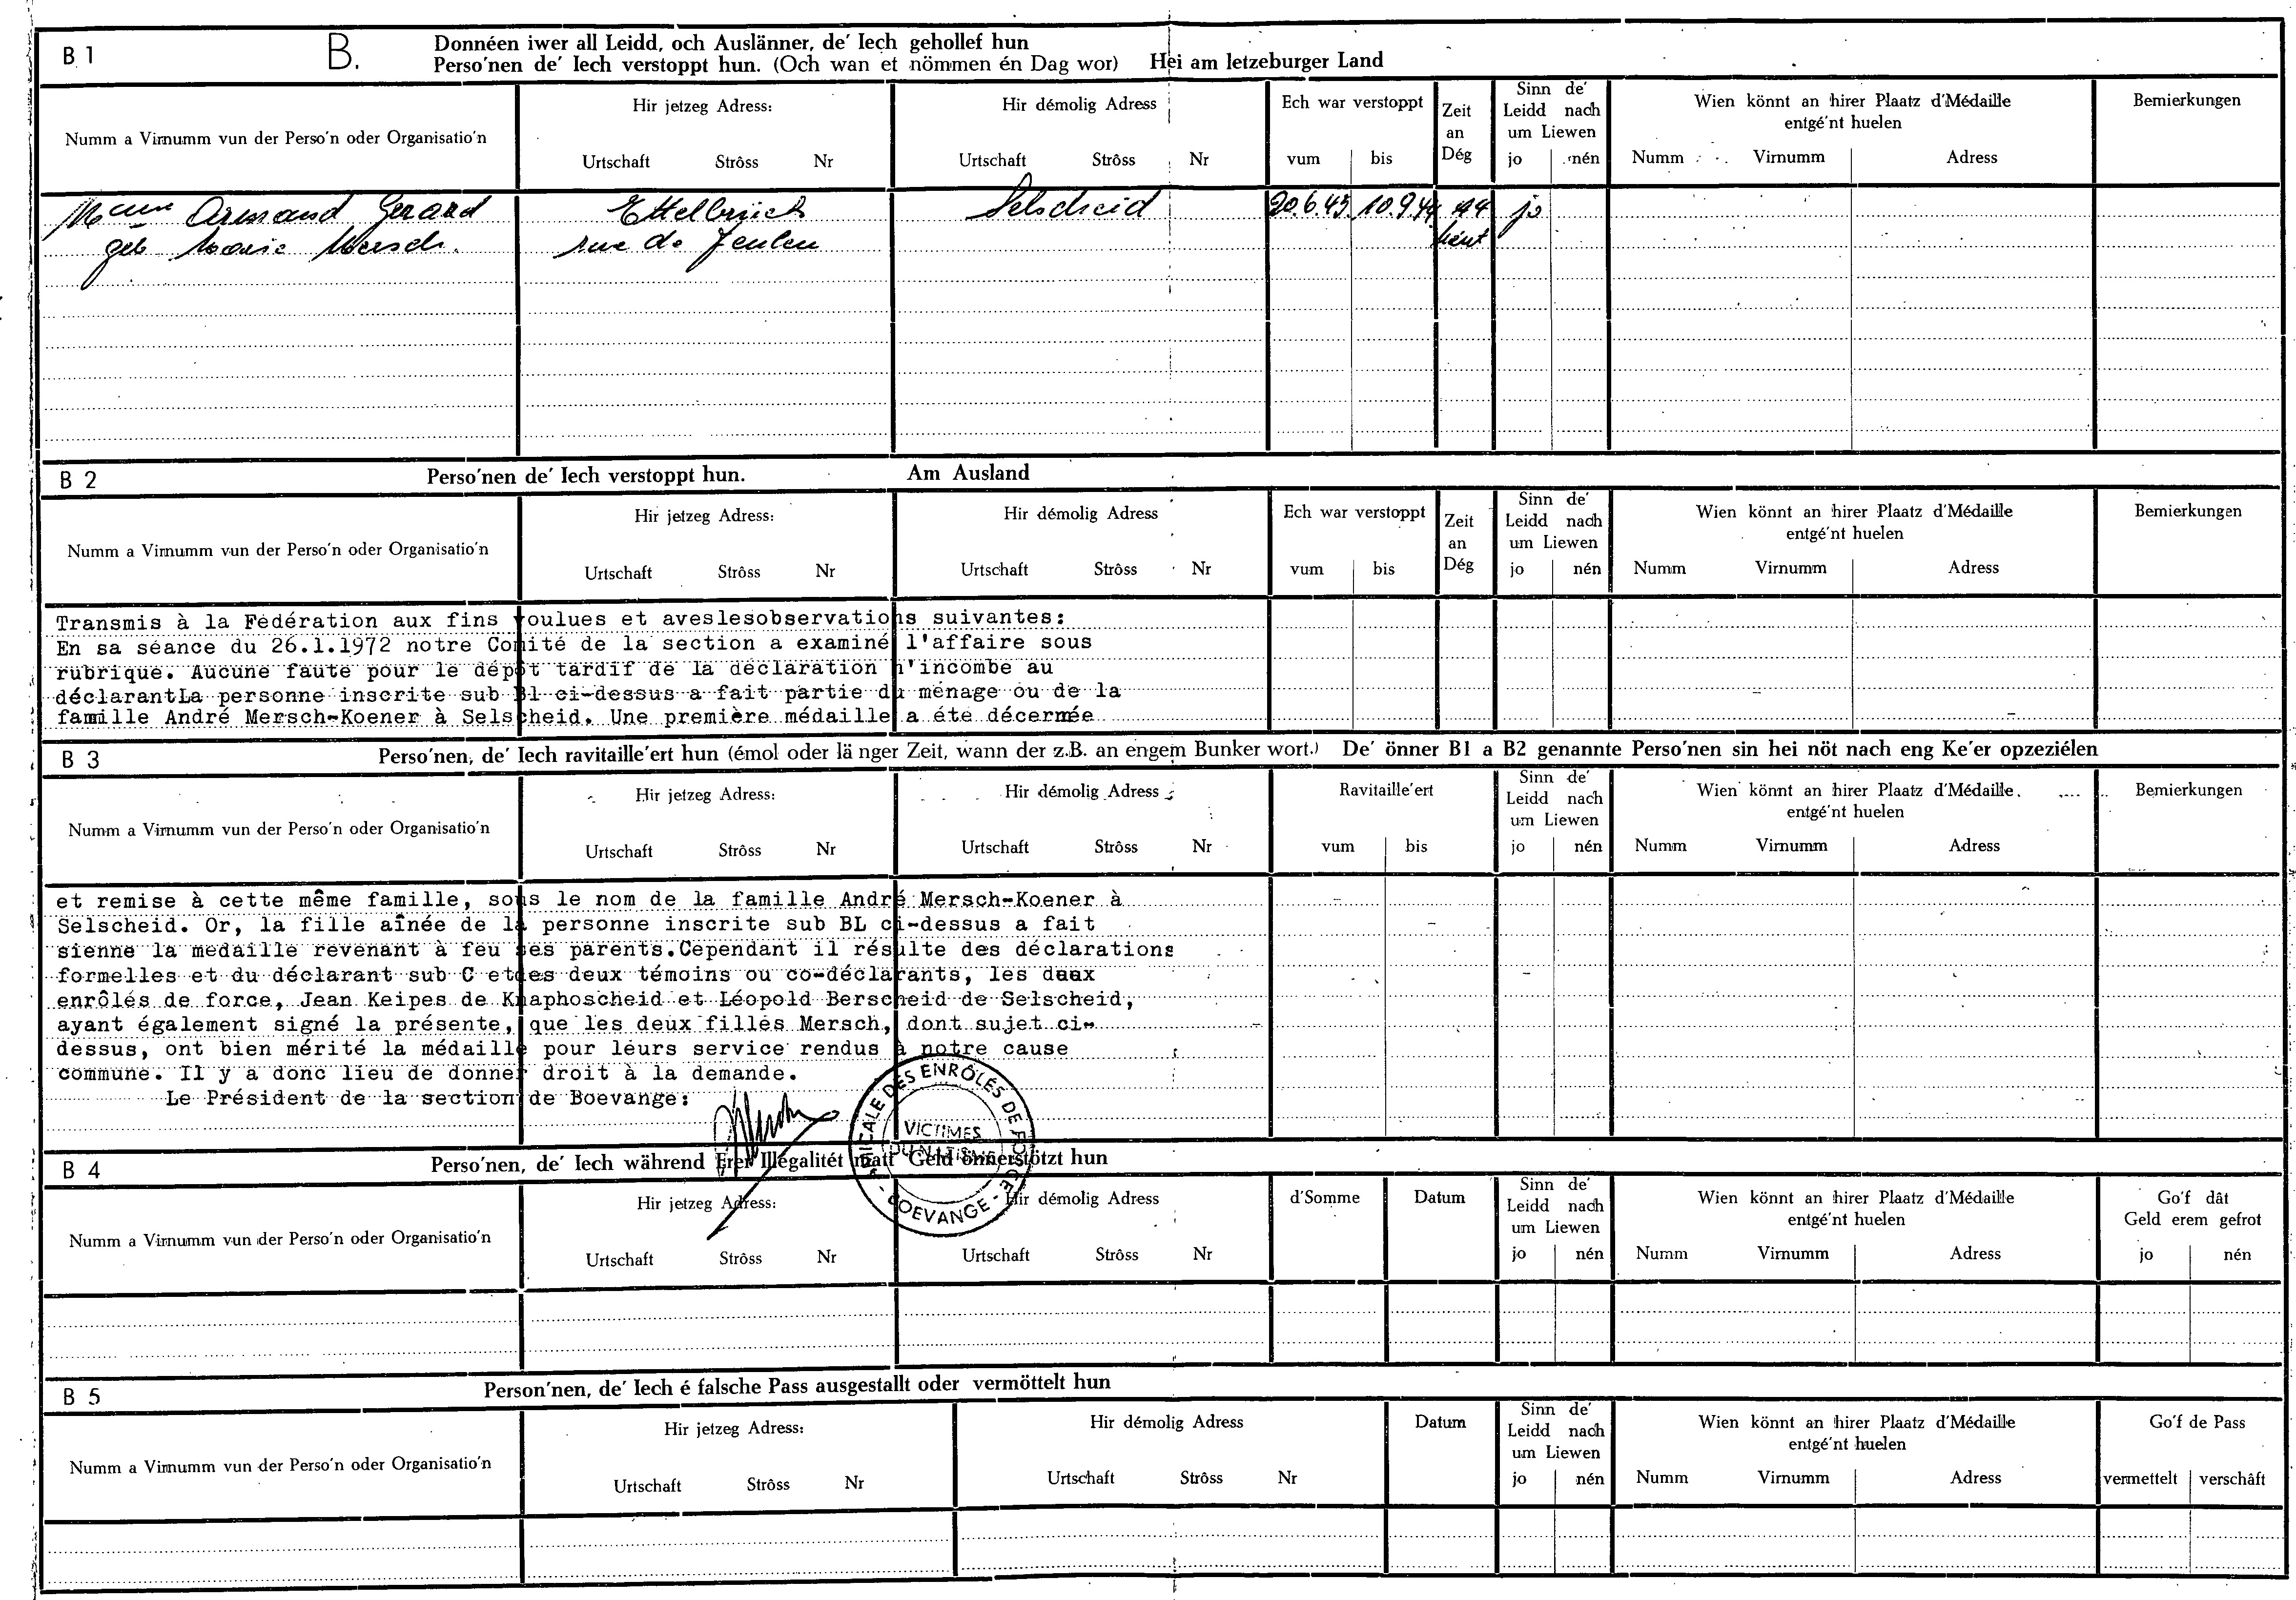 B 1 B. Donnéen iwer all Leidd, och Auslänner, de' Iech gehollef hun
Perso'nen de' Iech verstoppt hun. (Och wan et nömmen én Dag wor) Hei am letzeburger Land
Numm a Virnumm vun der Perso'n oder Organisatio'n
Hir jetzeg Adress:
Urtschaft Ströss Nr
Hir démolig Adress
Urtschaft Ströss Nr
Ech war verstoppt
vum bis
Zeit
an
Dég
Sinn de'
Leidd nach
um Liewen
jo nén
Wien könnt an hirer Plaatz d'Médaille
entgé'nt huelen
Numm Virnumm Adress
Bemierkungen
Mme Armand Gerard Ettelbrück Selscheid 20.6.43 10.9.44 jo
geb Marie Mersch. rue de
B 2 Perso'nen de' Iech verstoppt hun. Am Ausland
Numm a Virnumm vun der Perso'n oder Organisatio'n
Hir jetzeg Adress:
Urtschaft Ströss Nr
Hir démolig Adress
Urtschaft Ströss Nr
Ech war verstoppt
vum bis
Zeit
an
Dég
Sinn de'
Leidd nach
um Liewen
jo nén
Wien könnt an hirer Plaatz d'Médaille
entgé'nt huelen
Numm Virnumm Adress
Bemierkungen
Transmis à la Fédération aux fins voulues et aveslesobservations suivantes:
En sa séance du 26.1.1972 notre Comité de la section a examiné l'affaire sous
rubrique. Aucune faute pour le dépôt tardif de la déclaration n'incombe au
déclarantLa personne inscrite sub Bl ci-dessus a fait partie du ménage ou de la
famille André Mersch-Koener à Selscheid. Une première médaille a été décernée
B 3 Perso'nen, de' Iech ravitaille'ert hun (émol oder länger Zeit, wann der z.B. an engem Bunker wort.) De' önner B1 a B2 genannte Perso'nen sin hei nöt nach eng Ke'er opzeziélen
Numm a Virnumm vun der Perso'n oder Organisatio'n
Hir jetzeg Adress:
Urtschaft Ströss Nr
Hir démolig Adress
Urtschaft Ströss Nr
Ravitaille'ert
vum bis
Sinn de'
Leidd nach
um Liewen
jo nén
Wien könnt an hirer Plaatz d'Médaille
entgé'nt huelen
Numm Virnumm Adress
Bemierkungen
et remise à cette même famille, sous le nom de la famille André Mersch-Koener à
Selscheid. Or, la fille aînée de la personne inscrite sub BL ci-dessus a fait
sienne la médaille revenant à feu ses parents.Cependant il résulte des déclarations
formelles et du déclarant sub C etdes deux témoins ou co-déclarants, les deux
enrôlés de force, Jean Keipes de Knaphoscheid et Léopold Berscheid de Selscheid,
ayant également signé la présente, que les deux filles Mersch, dont sujet ci-
dessus, ont bien mérité la médaille pour leurs service rendus à notre cause
commune. Il y a donc lieu de donner droit à la demande.
Le Président de la section de Boevange:
AMICALE DES ENRÔLÉS DE FORCE
VICTIMES
DU NAZISME
- BOEVANGE -
B 4 Perso'nen, de' Iech während Erer Illégalitét matt Geld önnerstötzt hun
Numm a Virnumm vun der Perso'n oder Organisatio'n
Hir jetzeg Adress:
Urtschaft Ströss Nr
Hir démolig Adress
Urtschaft Ströss Nr
d'Somme
Datum
Sinn de'
Leidd nach
um Liewen
jo nén
Wien könnt an hirer Plaatz d'Médaille
entgé'nt huelen
Numm Virnumm Adress
Go'f dât
Geld erem gefrot
jo nén
B 5 Person'nen, de' Iech é falsche Pass ausgestallt oder vermöttelt hun
Numm a Virnumm vun der Perso'n oder Organisatio'n
Hir jetzeg Adress:
Urtschaft Ströss Nr
Hir démolig Adress
Urtschaft Ströss Nr
Datum
Sinn de'
Leidd nach
um Liewen
jo nén
Wien könnt an hirer Plaatz d'Médaille
entgé'nt huelen
Numm Virnumm Adress
Go'f de Pass
vermettelt verschâft